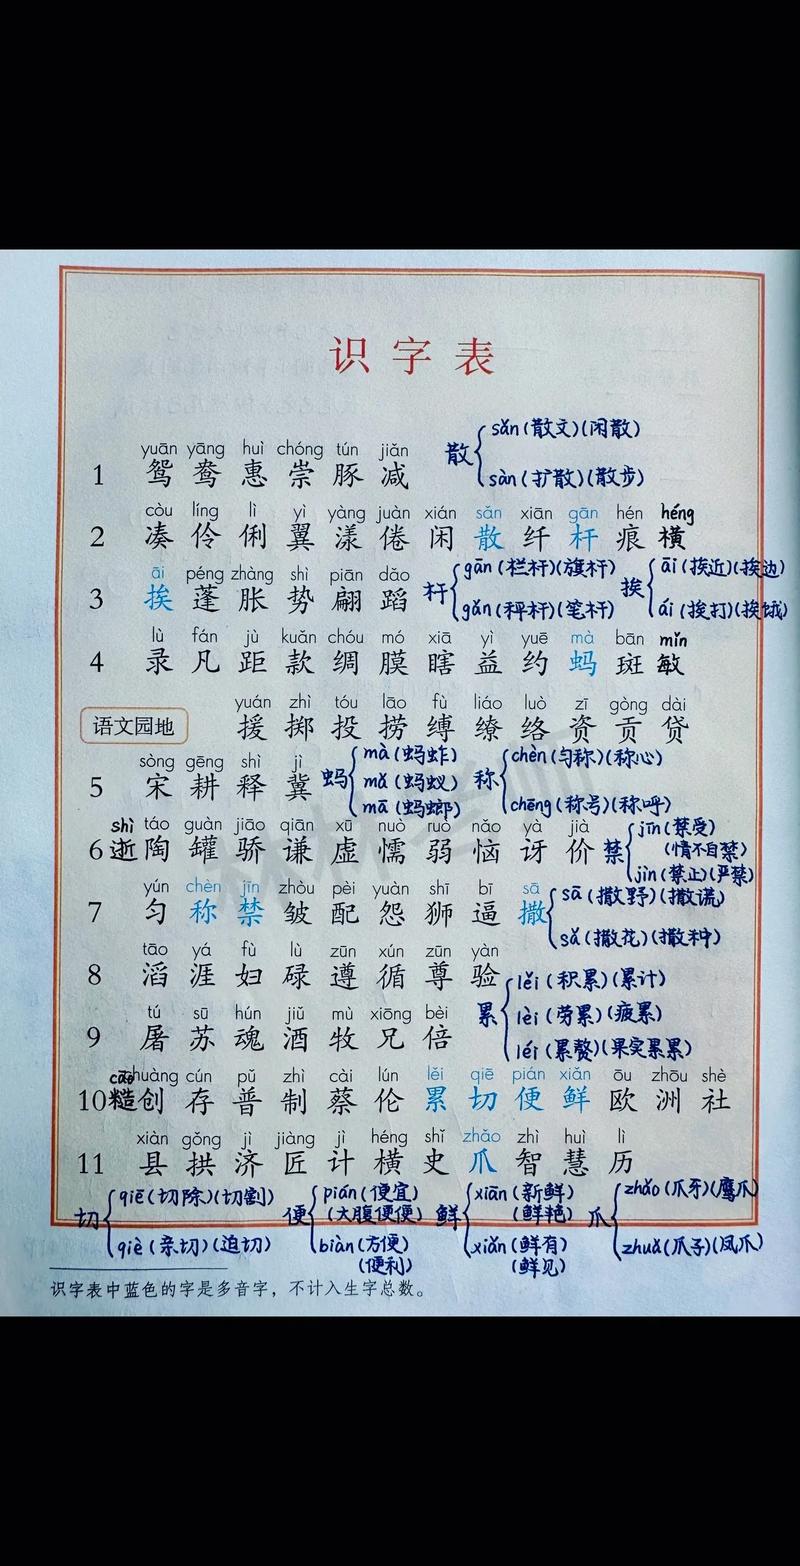 识字表
yuān yāng huì chóng tún jiǎn
1 鸳 鸯 惠 崇 豚 减
散 sǎn(散文)(闲散)
sàn(扩散)(散步)
còu líng lì yì yàng juàn xián sǎn xiān gān hén héng
2 凑 伶 俐 翼 漾 倦 闲 散 纤 杆 痕 横
āi péng zhàng shì piān dǎo
3 挨 蓬 胀 势 翩 蹈
杆 gān(栏杆)(旗杆)
gǎn(秤杆)(笔杆)
挨 āi(挨近)(挨边)
ái(挨打)(挨饿)
lù fán jù kuǎn chóu mó xiā yì yuē mà bān mǐn
4 录 凡 距 款 绸 膜 瞎 益 约 蚂 斑 敏
yuán zhì tóu lāo fù liáo luò zī gòng dài
语文园地 援 掷 投 捞 缚 缭 络 资 贡 贷
sòng gēng shì jì
5 宋 耕 释 冀
蚂 mà(蚂蚱)
mǎ(蚂蚁)
mā(蚂螂)
称 chèn(匀称)(称心)
chēng(称号)(称呼)
shì táo guàn jiāo qiān xū nuò ruò nǎo yà jià
6 逝 陶 罐 骄 谦 虚 懦 弱 恼 讶 价
禁 jīn(禁受)
(情不自禁)
jìn(禁止)(严禁)
yún chèn jīn zhòu pèi yuàn shī bī sā
7 匀 称 禁 皱 配 怨 狮 逼 撒
sā(撒野)(撒谎)
sǎ(撒花)(撒种)
tāo yá fù lù zūn xún zūn yàn
8 滔 涯 妇 碌 遵 循 尊 验
累 lěi(积累)(累计)
lèi(劳累)(疲累)
léi(累赘)(果实累累)
tú sū hún jiǔ mù xiōng bèi
9 屠 苏 魂 酒 牧 兄 倍
cāo chuàng cún pǔ zhì cài lún lěi qiē pián xiǎn ōu zhōu shè
10 糙 创 存 普 制 蔡 伦 累 切 便 鲜 欧 洲 社
xiàn gǒng jì jiàng jì héng shǐ zhǎo zhì huì lì
11 县 拱 济 匠 计 横 史 爪 智 慧 历
切 qiē(切除)(切割)
qiè(亲切)(迫切)
便 pián(便宜)
(大腹便便)
biàn(方便)
(便利)
鲜 xiān(新鲜)
(鲜艳)
xiǎn(鲜有)
(鲜见)
爪 zhǎo(爪牙)(鹰爪)
zhuǎ(爪子)(凤爪)
识字表中蓝色的字是多音字，不计入生字总数。